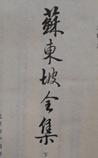 蘇東坡全集
下